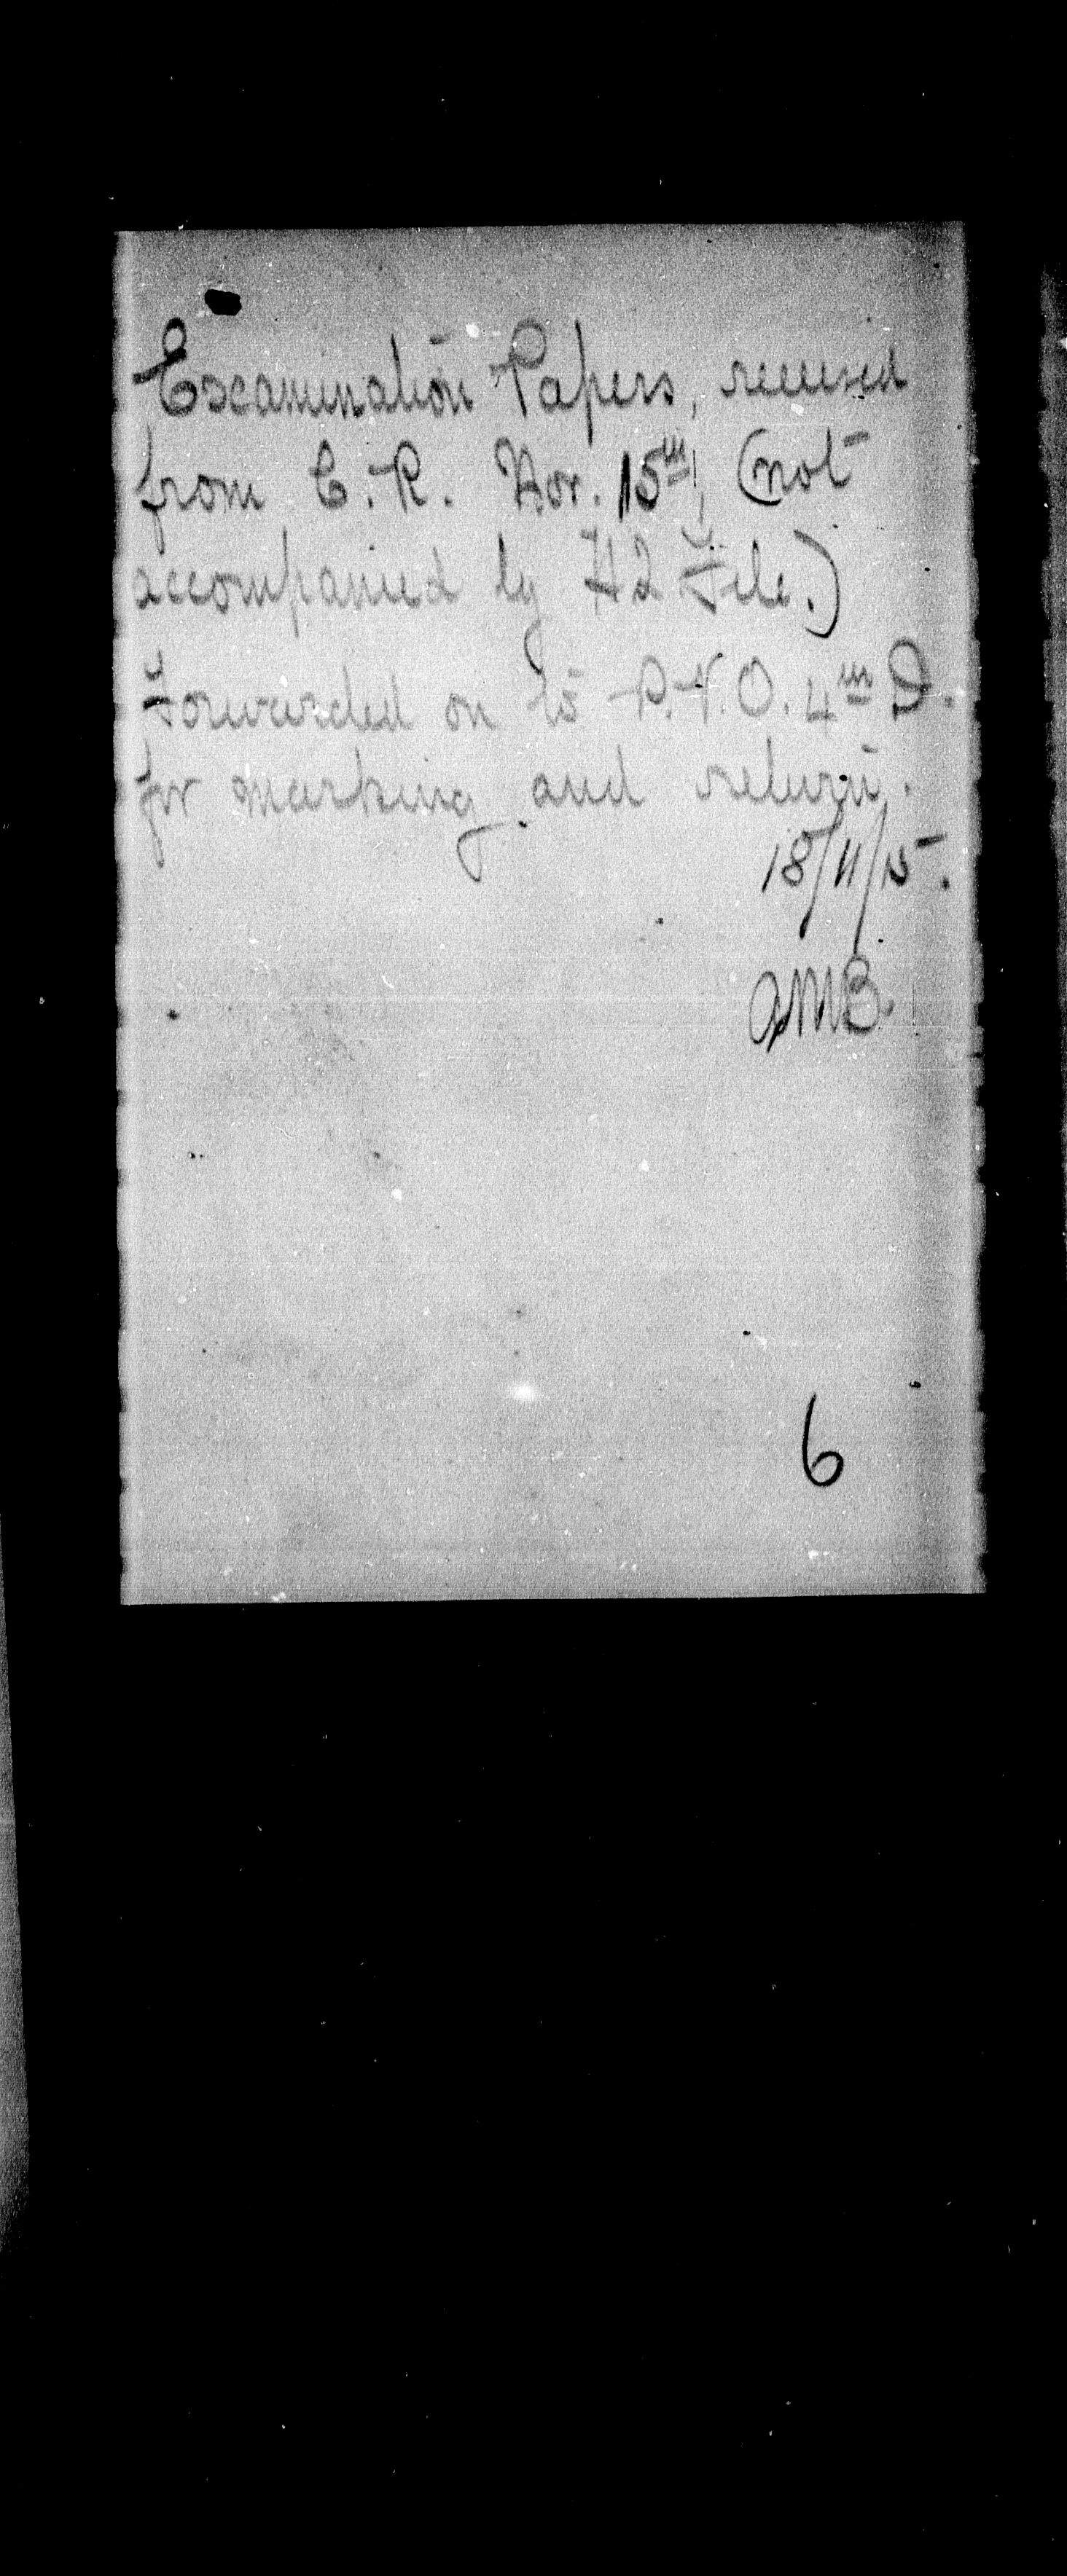 Examination Papers, received
from C.R. Nov. 15th, (not
accompanied by HQ File.)
Forwarded on to P.V.O. 4th D.
for marking and return.
18/11/15.
AMB.
6